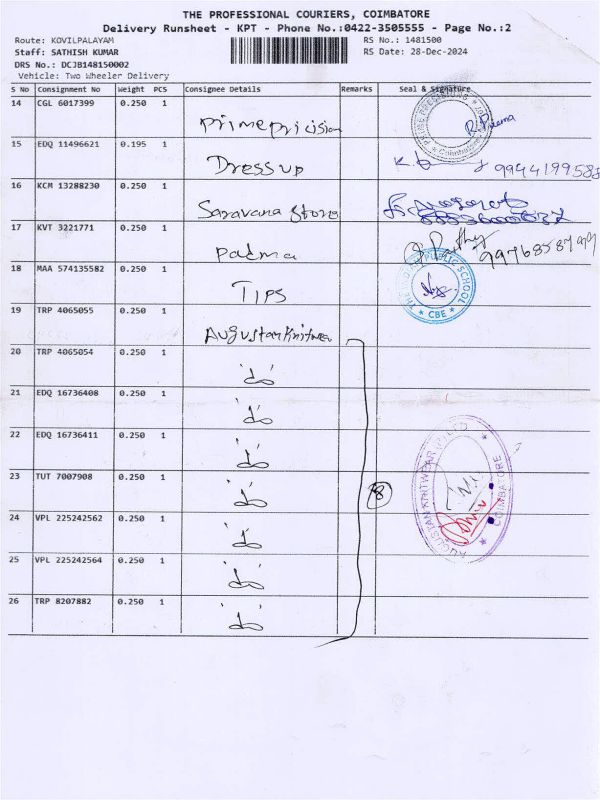 THE PROFESSIONAL COURIERS, COIMBATORE
Delivery Runsheet - KPT - Phone No.:0422-3505555 - Page No.:2
Route: KOVILPALAYAM RS No.: 1481500
Staff: SATHISH KUMAR RS Date: 28-Dec-2024
DRS No.: DCJB148150002
Vehicle: Two Wheeler Delivery
S No Consignment No Weight PCS Consignee Details Remarks Seal & Signature
14 CGL 6017399 0.250 1 Prime pricision
15 EDQ 11496621 0.195 1 Dress up 9994199588
16 KCM 13288230 0.250 1 Saravana Store
17 KVT 3221771 0.250 1 Padma
18 MAA 574135582 0.250 1 TIPS PUBLIC SCHOOL CBE
19 TRP 4065055 0.250 1 Augustan Knitwea
20 TRP 4065054 0.250 1 'do'
21 EDQ 16736408 0.250 1 'do'
22 EDQ 16736411 0.250 1 'do'
23 TUT 7007908 0.250 1 'do' 8 AUGUSTAN KNITWEAR COIMBATORE
24 VPL 225242562 0.250 1 'do'
25 VPL 225242564 0.250 1 'do'
26 TRP 8207882 0.250 1 'do'